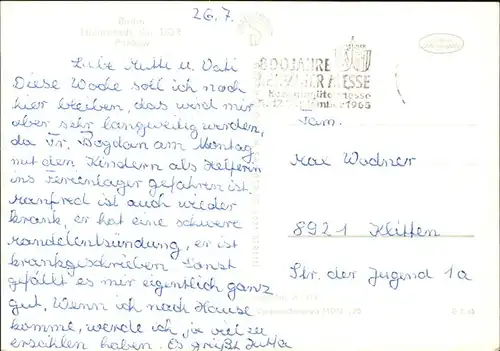 26.7.
Berlin
800 JAHRE
MESSE
1965
Liebe Mutti u. Vati
Diese Woche soll ich noch
hier bleiben, das wird mir
aber sehr langweilig werden,
da Fr. Bogdan am Montag
mit den Kindern als Helferin
ins Ferienlager gefahren ist.
Manfred ist auch wieder
krank, er hat eine schwere
Mandelentsündung, er ist
krankgeschrieben Sonst
gefällt es mir eigentlich ganz
gut, Wenn ich nach Hause
komme, werde ich ja viel zu
erzählen haben. Es grüßt Jutta
Fam.
Max Wodner
8921 Klitten
Str. der Jugend 1a